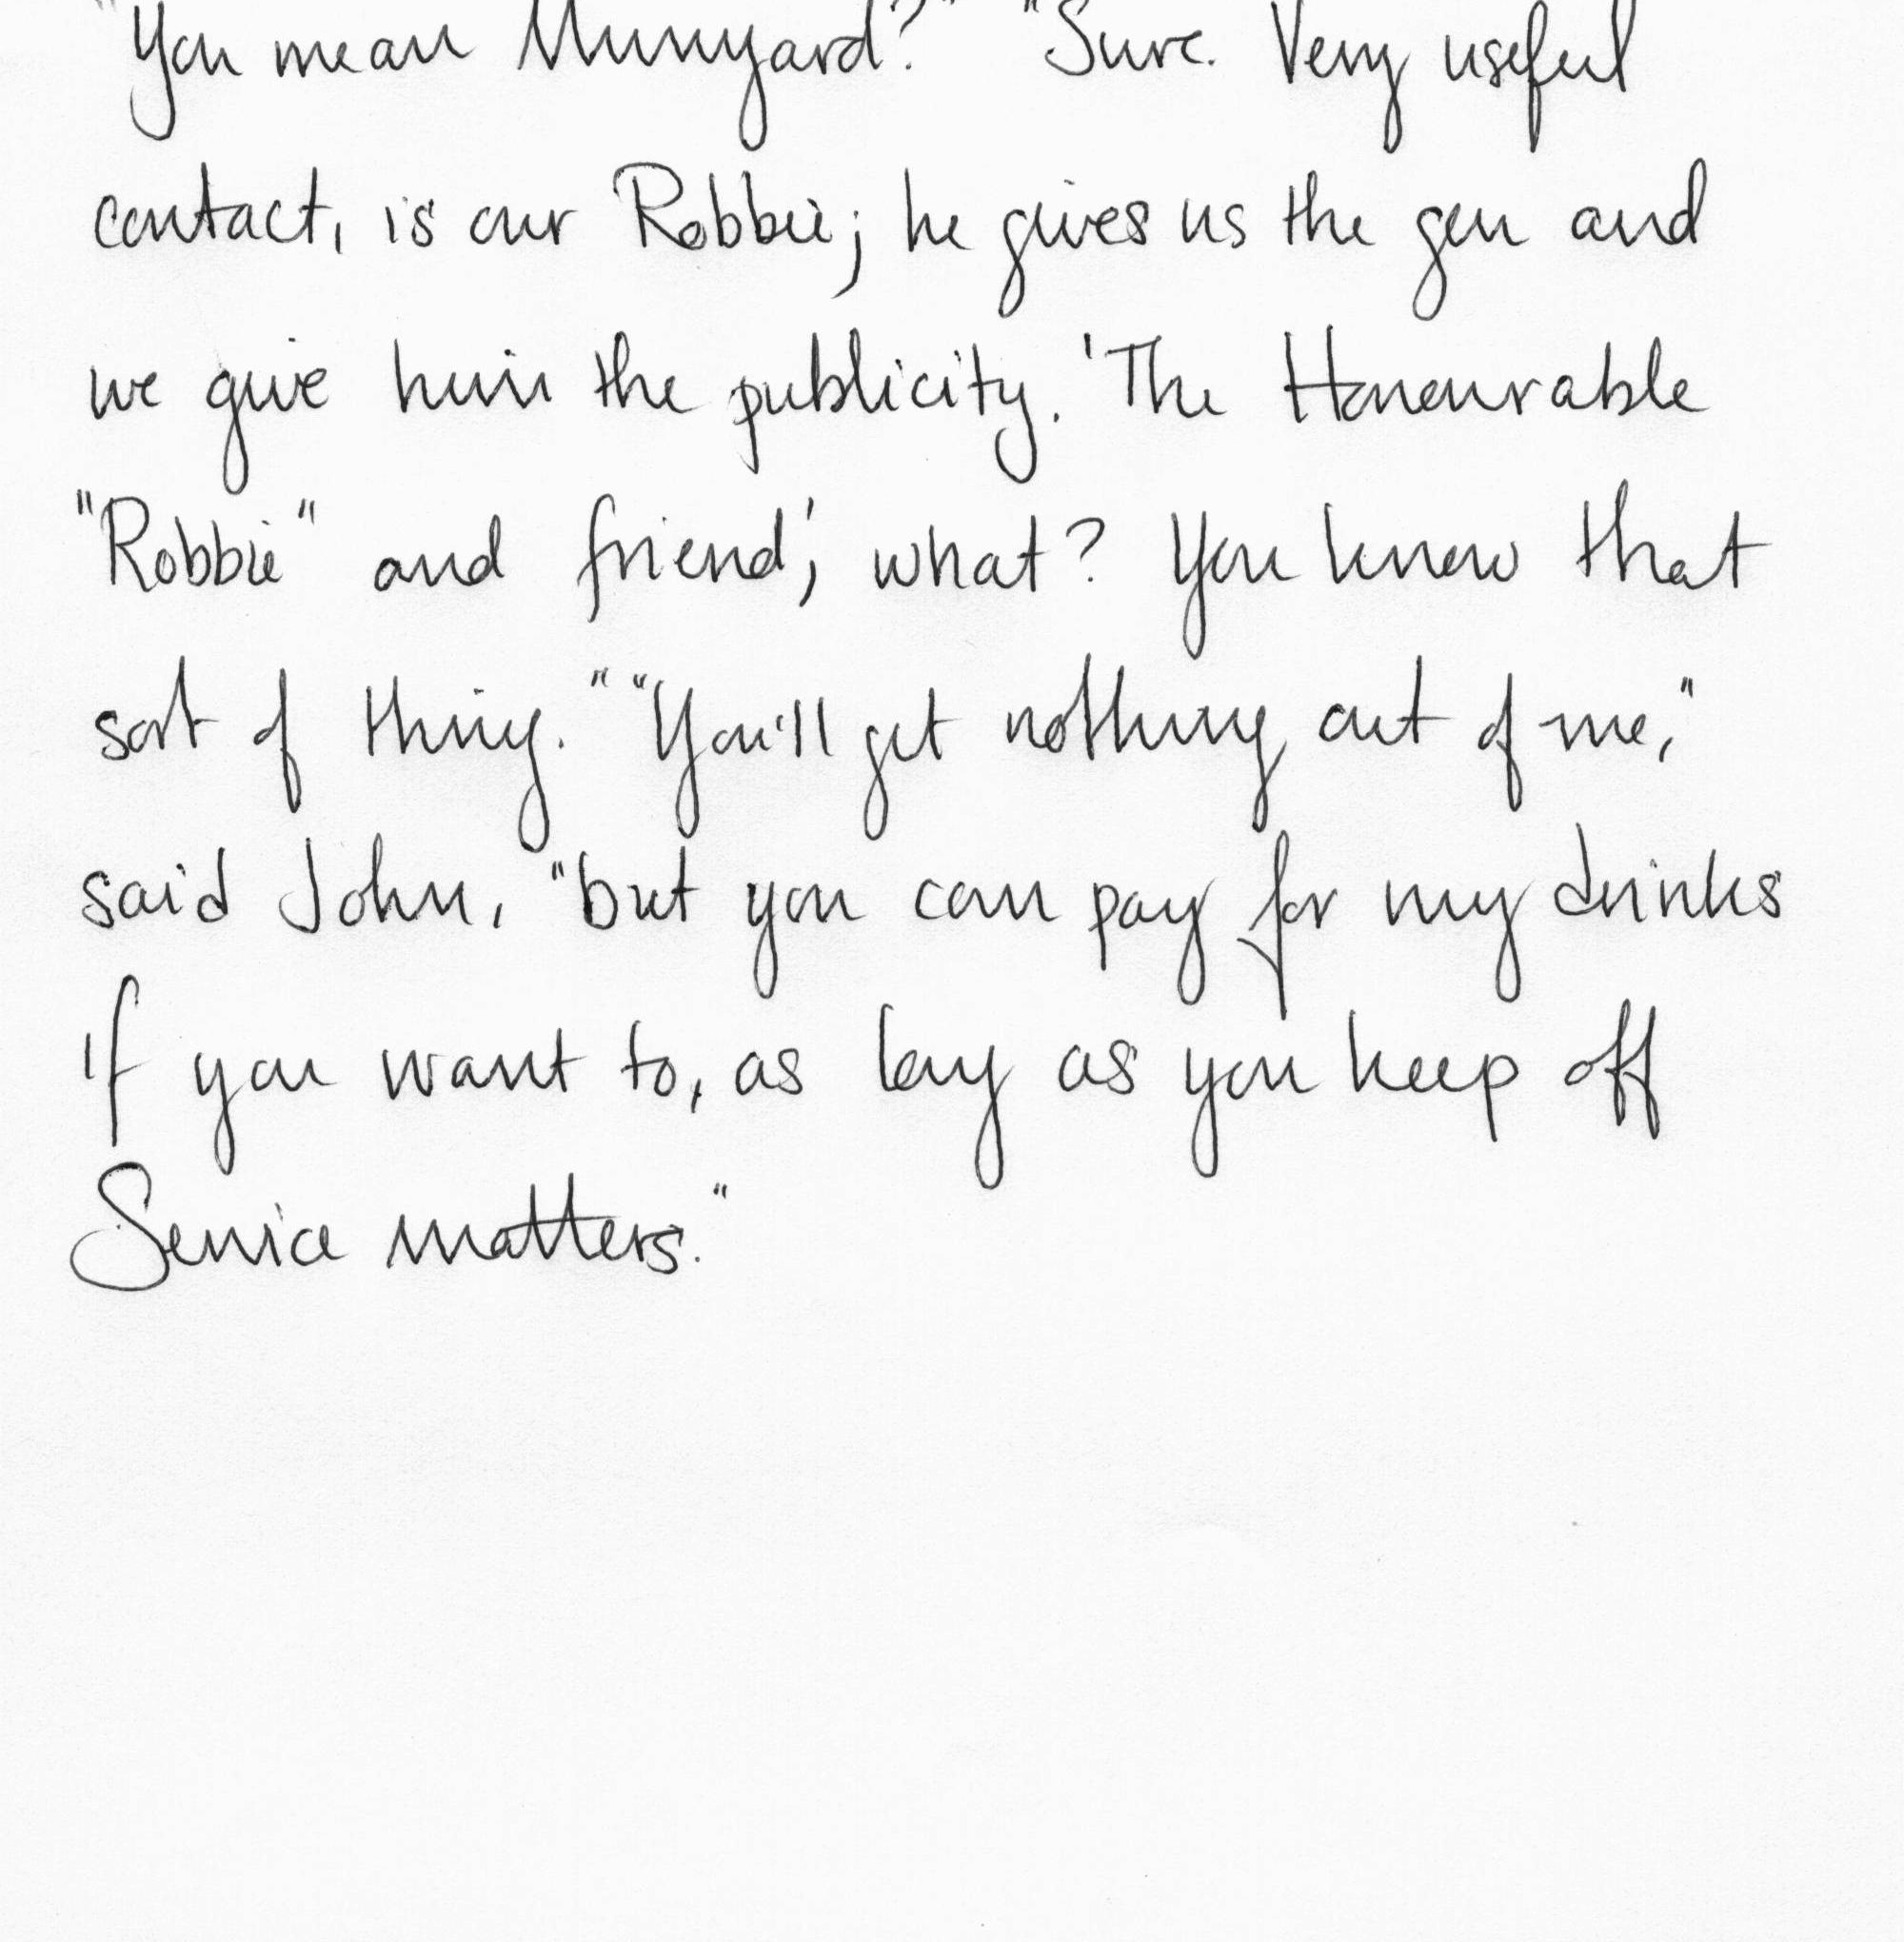 "You mean Munyard?" "Sure. Very useful
contact, is our Robbie; he gives us the gen and
we give him the publicity. 'The Honourable
"Robbie" and friend', what? You know that
sort of thing." "You'll get nothing out of me,"
said John, "but you can pay for my drinks
if you want to, as long as you keep off
Service matters."